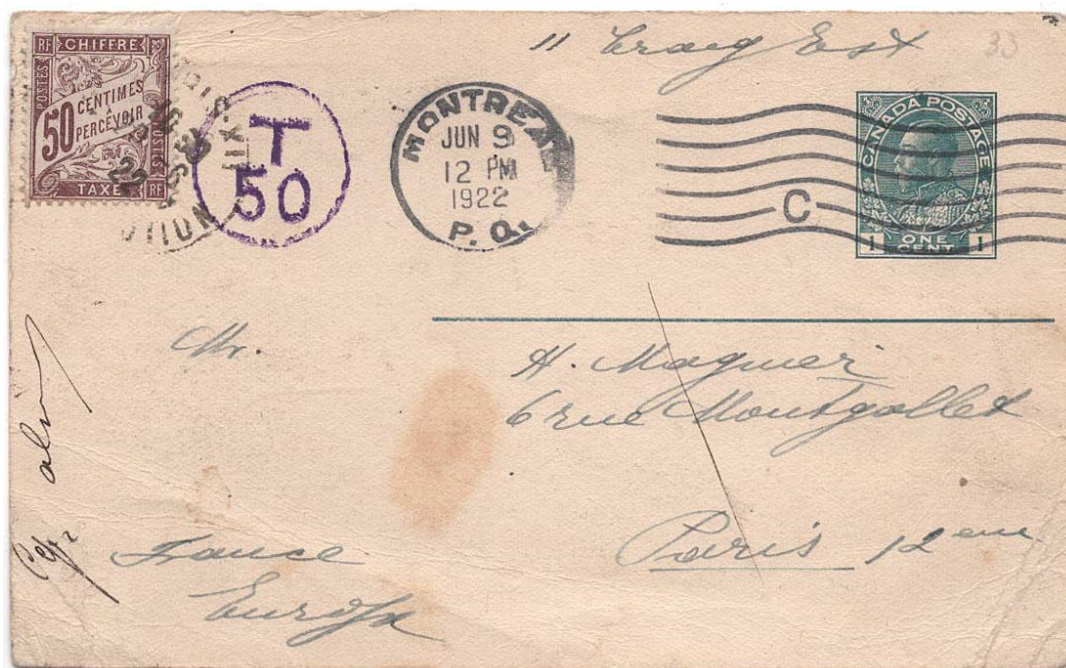 11 Craig East
33
RF CHIFFRE RF
POSTES
50 CENTIMES
PERCEVOIR
POSTES
TAXE RF
T
50
MONTREAL
JUN 9
12 PM
1922
P.Q.
C
CANADA POSTAGE
1 ONE CENT 1
Mr.
H. Magmer
6 rue Montgallet
Paris 12 eme
France
Europa